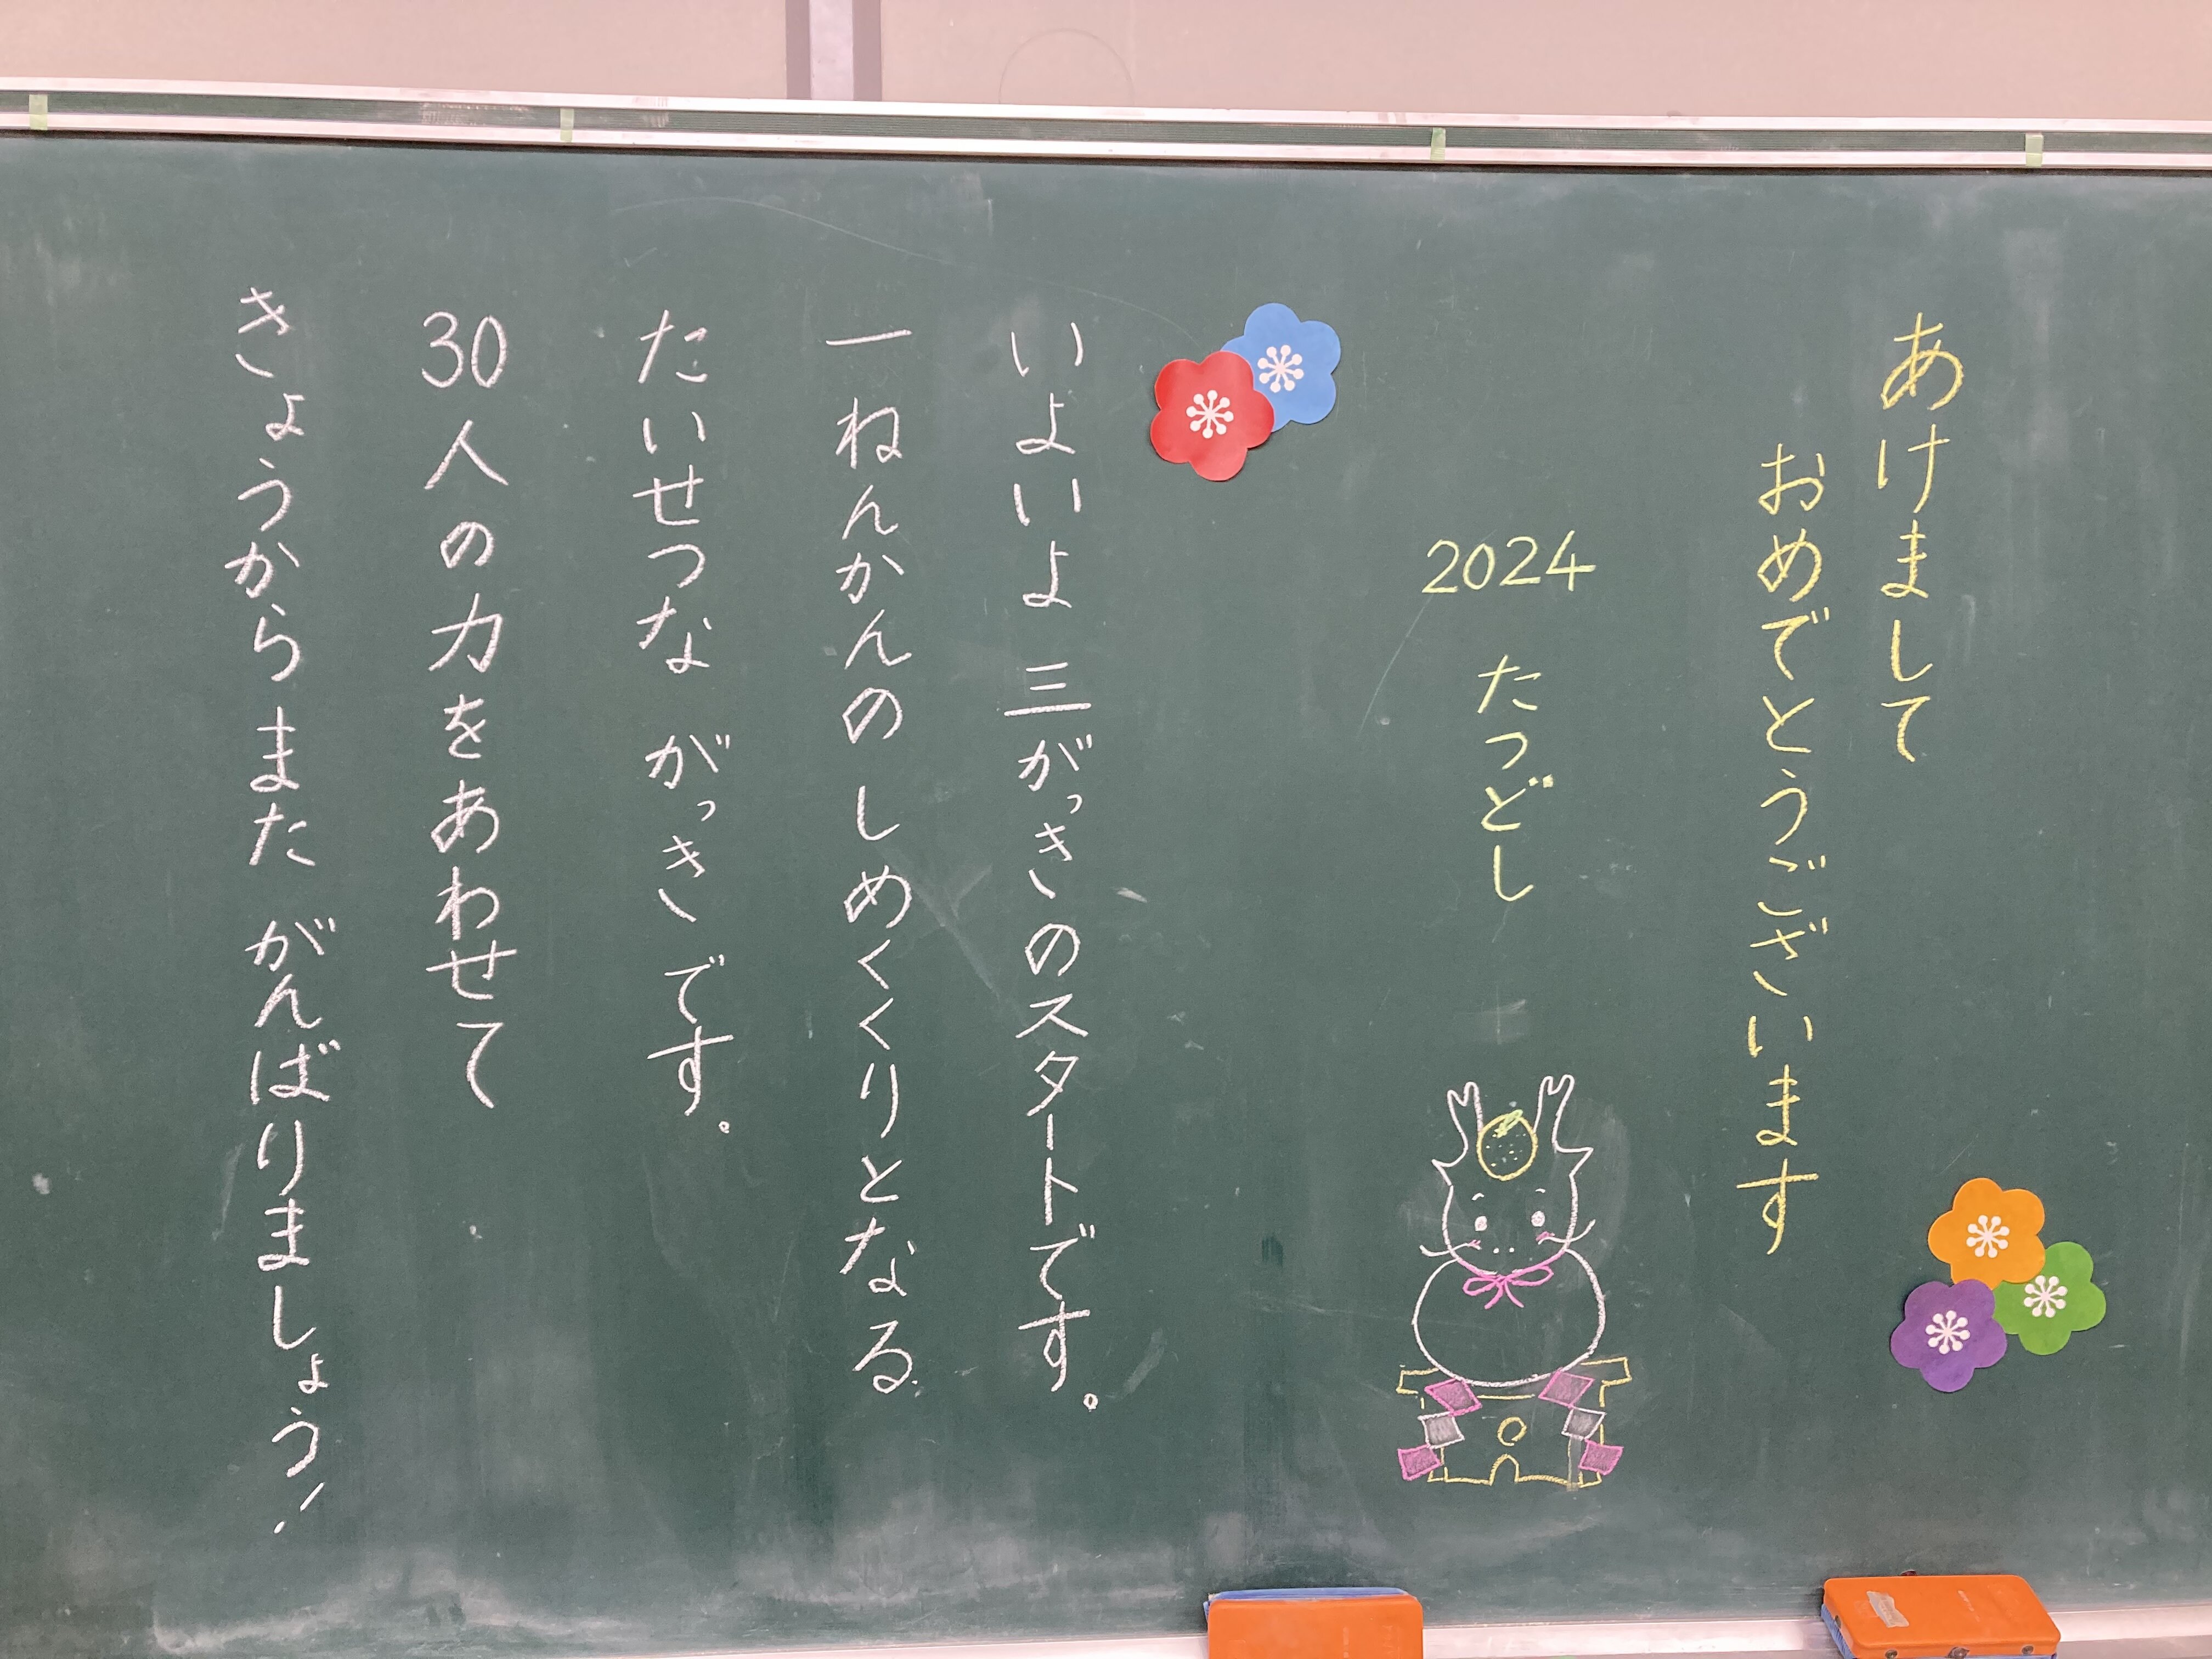 あけまして
おめでとうございます
2024 たつどし
いよいよ 三がっきのスタートです。
一ねんかんの しめくくりとなる
たいせつな がっきです。
30人の力をあわせて
きょうから また がんばりましょう!